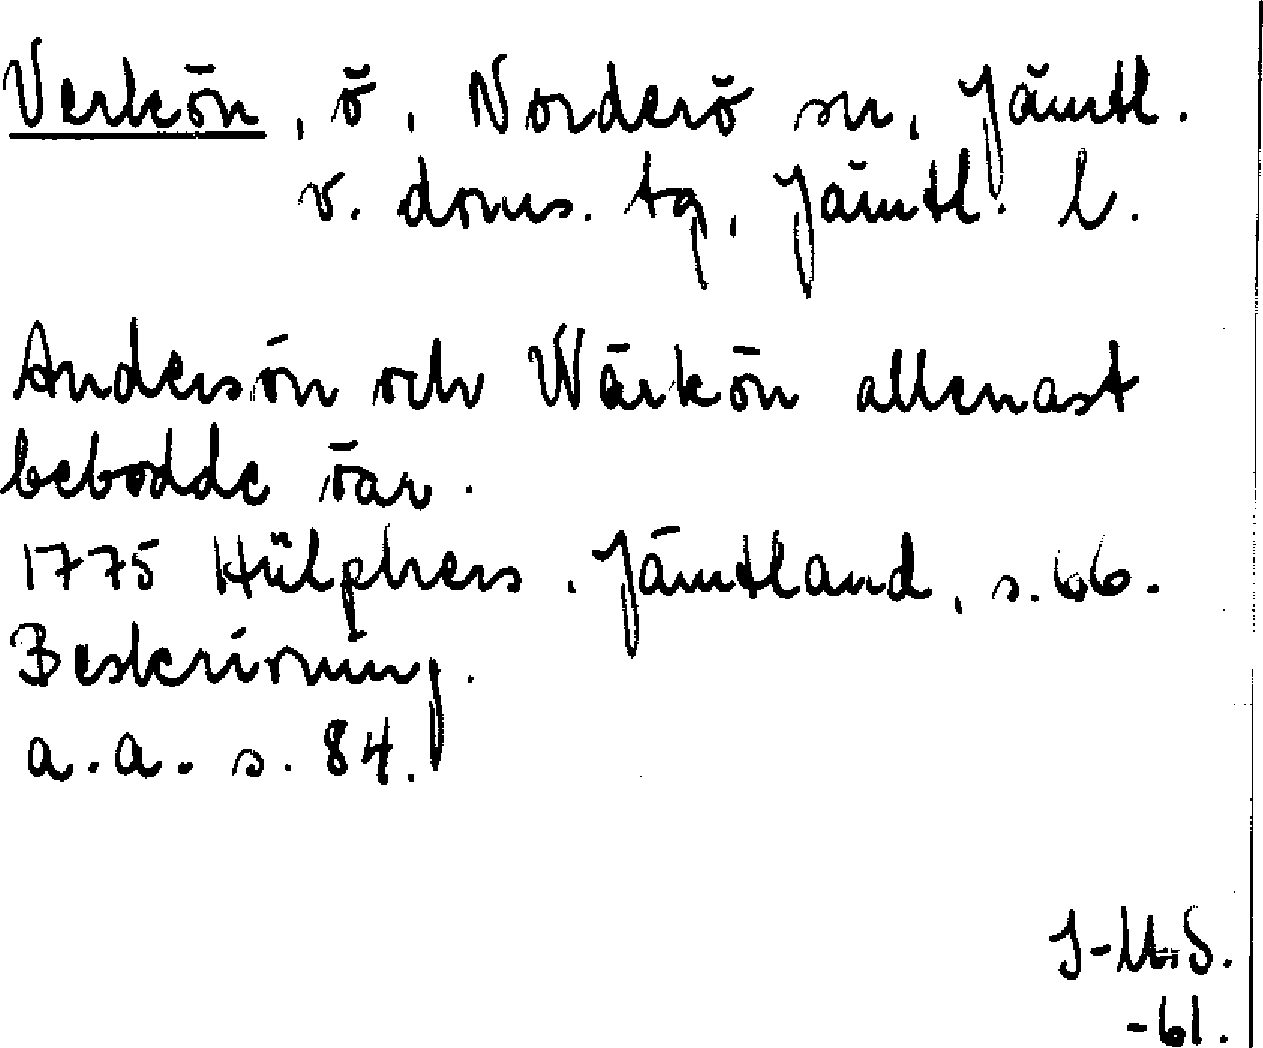 Verkön, ö, Norderö sn, Jämtl.
v. doms. tg, Jämtl. l.
Andersön och Wärkön allenast
bebodde öar.
1775 Hülphers. Jämtland, s. 66.
Beskrivning.
a.a. s. 84.
I-M.S.
-61.